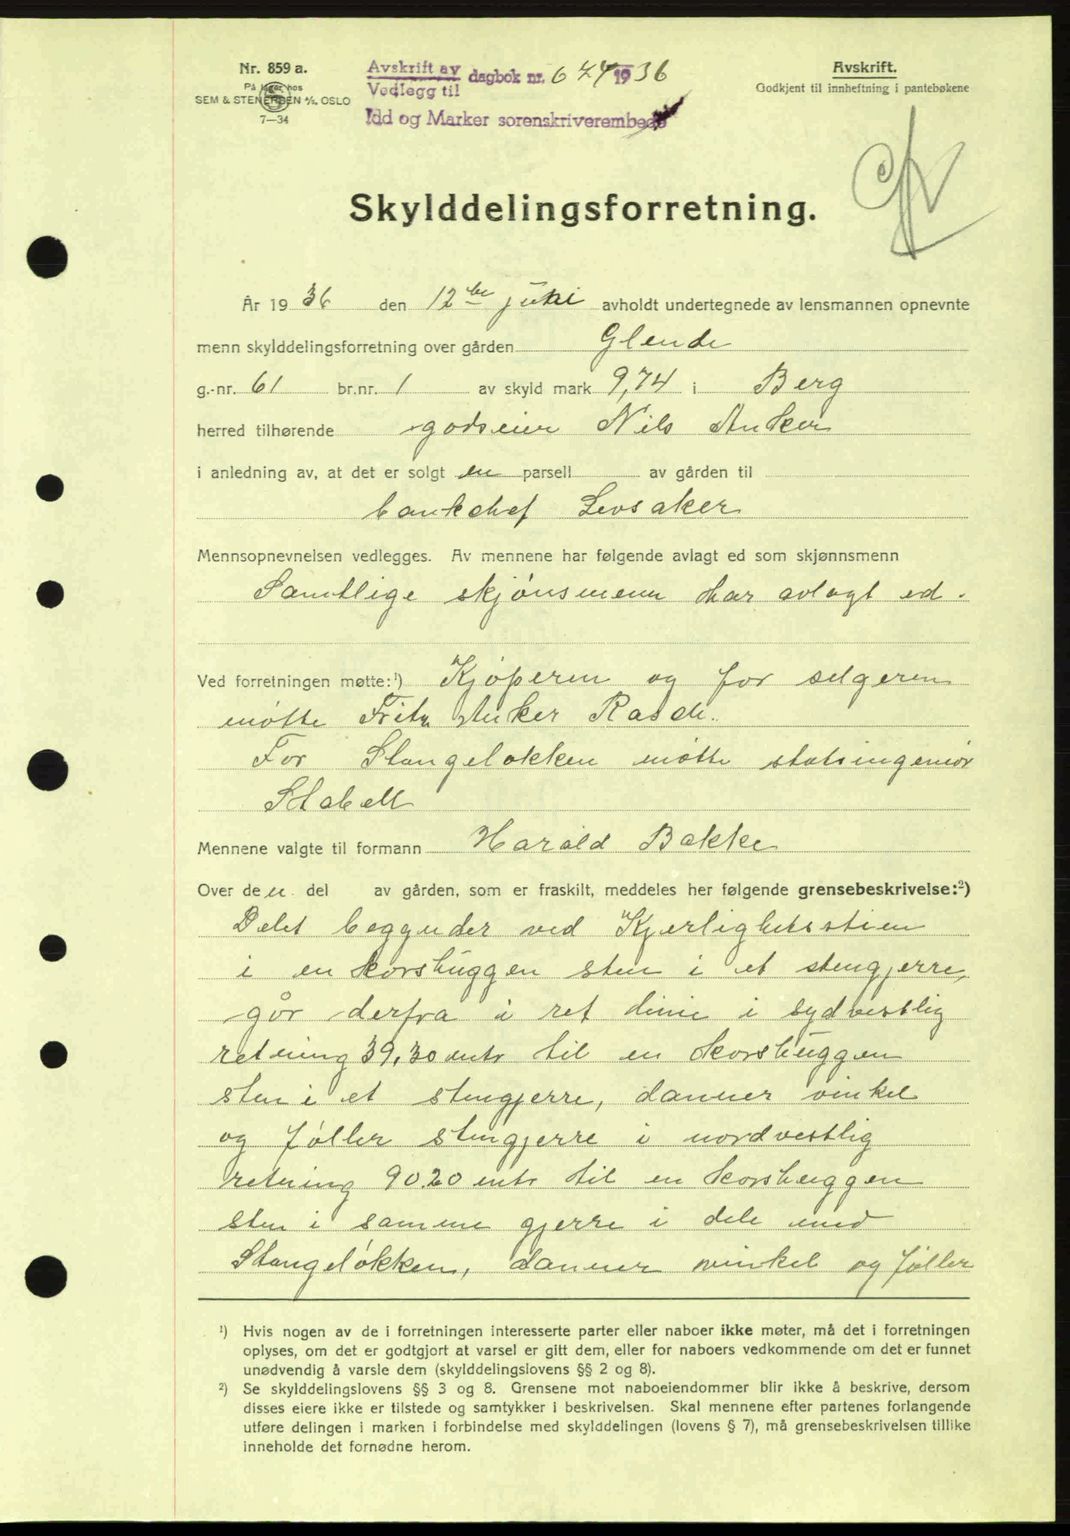 Nr. 859 a.
På lager hos
SEM & STENERSEN A/S, OSLO
7—34
Avskrift av
Vedlegg til
dagbok nr. 677 1936
Idd og Marker sorenskriverembede
Avskrift.
Godkjent til innheftning i pantebøkene
Skylddelingsforretning.
År 1936 den 12te juni avholdt undertegnede av lensmannen opnevnte
menn skylddelingsforretning over gården Glende
g.-nr. 61 br.nr. 1 av skyld mark 9,74 i Berg
herred tilhørende godseier Nils Anker
i anledning av, at det er solgt en parsell av gården til
bankchef Levsaker
Mennsopnevnelsen vedlegges. Av mennene har følgende avlagt ed som skjønnsmenn
Samtlige skjönsmenn har avlagt ed.
Ved forretningen møtte:¹) Kjöperen og for selgeren
mötte Fritz Anker Rasch.
For Stangeløkken mötte statsingeniör
Stabell
Mennene valgte til formann Harald Bakke
Over den del av gården, som er fraskilt, meddeles her følgende grensebeskrivelse:²)
Delet begynder ved Kjerlighetsstien
i en korshuggen sten i et stengjerre,
går derfra i ret linie i sydvestlig
retning 39,30 mtr til en korshuggen
sten i et stengjerre, danner vinkel
og föller stengjerre i nordvestlig
retning 90.20 mtr til en korshuggen
sten i samme gjerre i dele med
Stangelökken, danner vinkel og föller
¹) Hvis nogen av de i forretningen interesserte parter eller naboer ikke møter, må det i forretningen
oplyses, om det er godtgjort at varsel er gitt dem, eller for naboers vedkommende om det er funnet
unødvendig å varsle dem (skylddelingslovens §§ 2 og 8).
²) Se skylddelingslovens §§ 3 og 8. Grensene mot naboeiendommer blir ikke å beskrive, dersom
disses eiere ikke er tilstede og samtykker i beskrivelsen. Skal mennene efter partenes forlangende
utføre delingen i marken i forbindelse med skylddelingen (lovens § 7), må grensebeskrivelsen tillike
inneholde det fornødne herom.